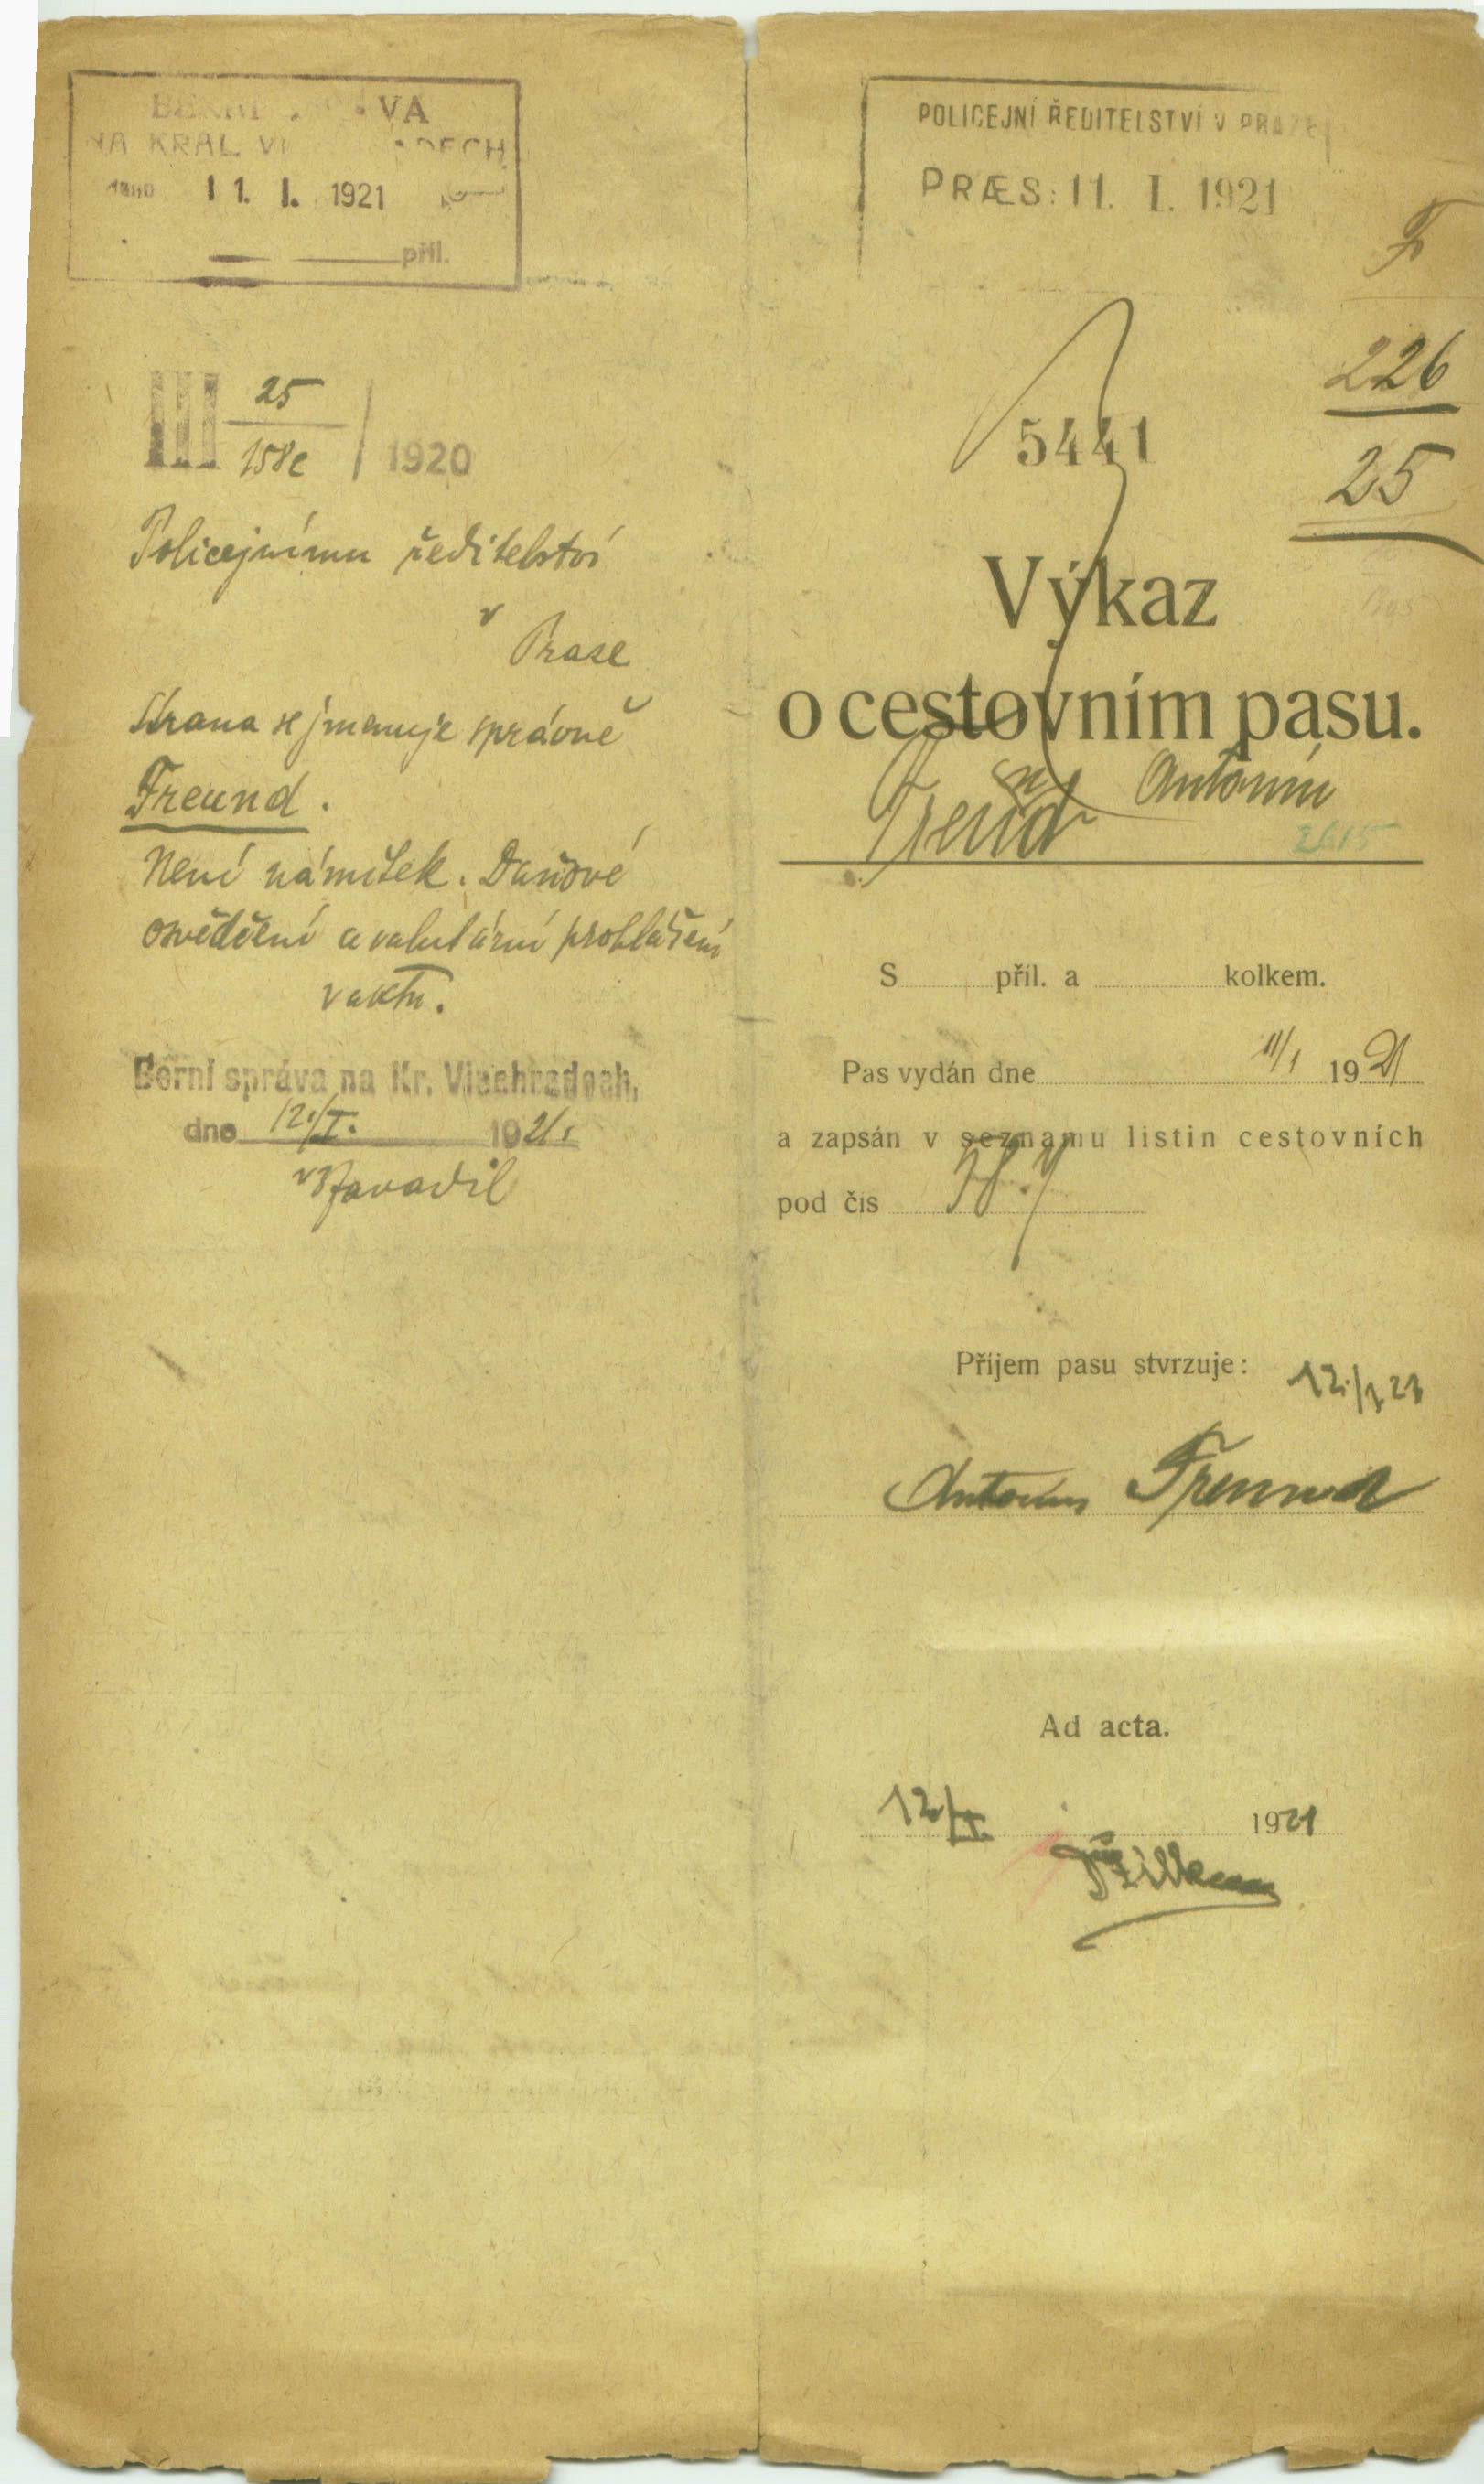 VA
NA KRAL VI ADECH
11. I. 1921
příl.
III 25 / 1920
158c
Policejnímu ředitelství
v
Praze
Strana se jmenuje správně
Freund.
Není námitek. Daňové
osvědčení a valutární prohlášení
Berní správa na Kr. Vinohradech,
dne 12./I. 1921.
POLICEJNÍ ŘEDITELSTVÍ V PRAZE
PRÆS: 11. I. 1921
F
226
25
5441
Výkaz
o cestovním pasu.
Freund Antonín
2615
S příl. a kolkem.
Pas vydán dne 11/1 1921
a zapsán v seznamu listin cestovních
pod čís
Příjem pasu stvrzuje:
Antonín Freund
Ad acta.
12/I. 1921